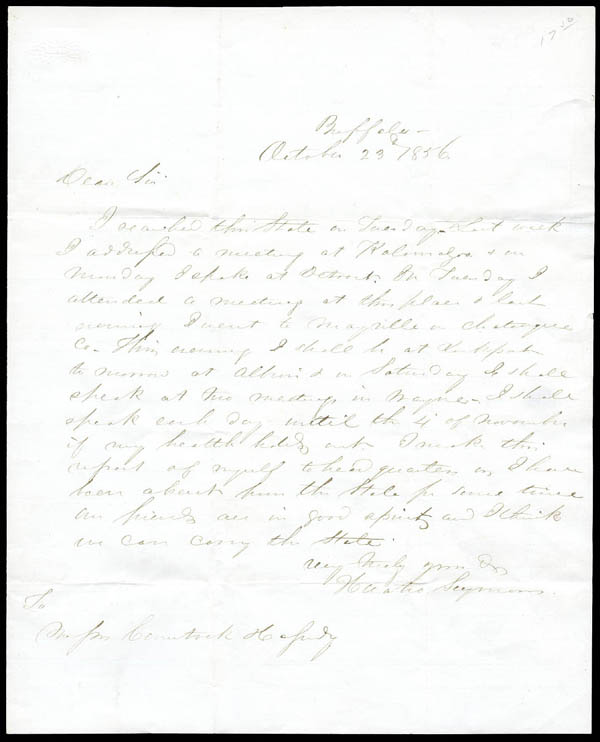 17 50
Buffalo -
October 23d 1856
Dear Sir
I reached this State on Tuesday. Last week
I addressed a meeting at Kalamazoo & on
monday I spoke at Detroit. On Tuesday I
attended a meeting at this place & last
evening I went to Mayville in Chatauque
Co. This evening I shall be at Lockport
to morrow at Albion & on Saturday I shall
speak at two meetings in Wayne. I shall
speak each day until the 4 of November
if my health holds out. I make this
report of myself to head quarters as I have
been absent from the State for some time
Our friends are in good spirits and I think
we can carry the State.
very truly yours &c
Horatio Seymour
To
Messrs Comstock